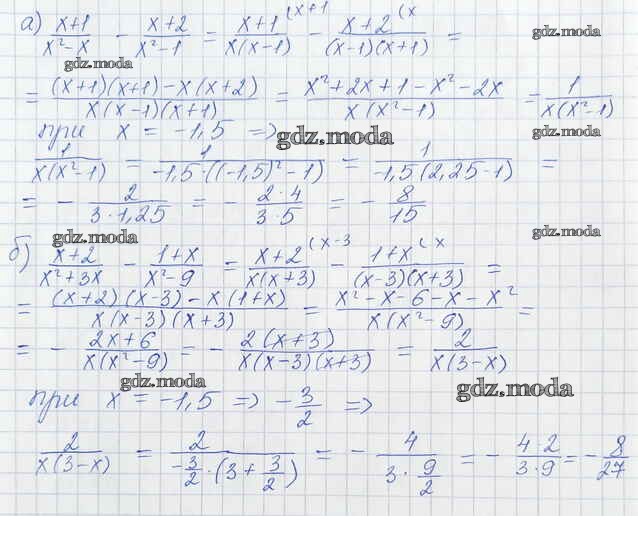 а) (x+1)/(x²-x) - (x+2)/(x²-1) = (x+1)/(x(x-1)) (x+1 - (x+2)/((x-1)(x+1)) (x =
gdz.moda gdz.moda
= ((x+1)(x+1)-x(x+2))/(x(x-1)(x+1)) = (x²+2x+1-x²-2x)/(x(x²-1)) = 1/(x(x²-1))
при x = -1,5 =>
gdz.moda gdz.moda
1/(x(x²-1)) = 1/(-1,5·((-1,5)²-1)) = 1/(-1,5(2,25-1)) =
= - 2/(3·1,25) = - (2·4)/(3·5) = - 8/15
gdz.moda gdz.moda
б) (x+2)/(x²+3x) - (1+x)/(x²-9) = (x+2)/(x(x+3)) (x-3 - (1+x)/((x-3)(x+3)) (x =
= ((x+2)(x-3)-x(1+x))/(x(x-3)(x+3)) = (x²-x-6-x-x²)/(x(x²-9)) =
= - (2x+6)/(x(x²-9)) = - 2(x+3)/(x(x-3)(x+3)) = 2/(x(3-x))
gdz.moda gdz.moda
при x = -1,5 => - 3/2 =>
2/(x(3-x)) = 2/(-3/2·(3+3/2)) = - 4/(3·9/2) = - (4·2)/(3·9) = - 8/27